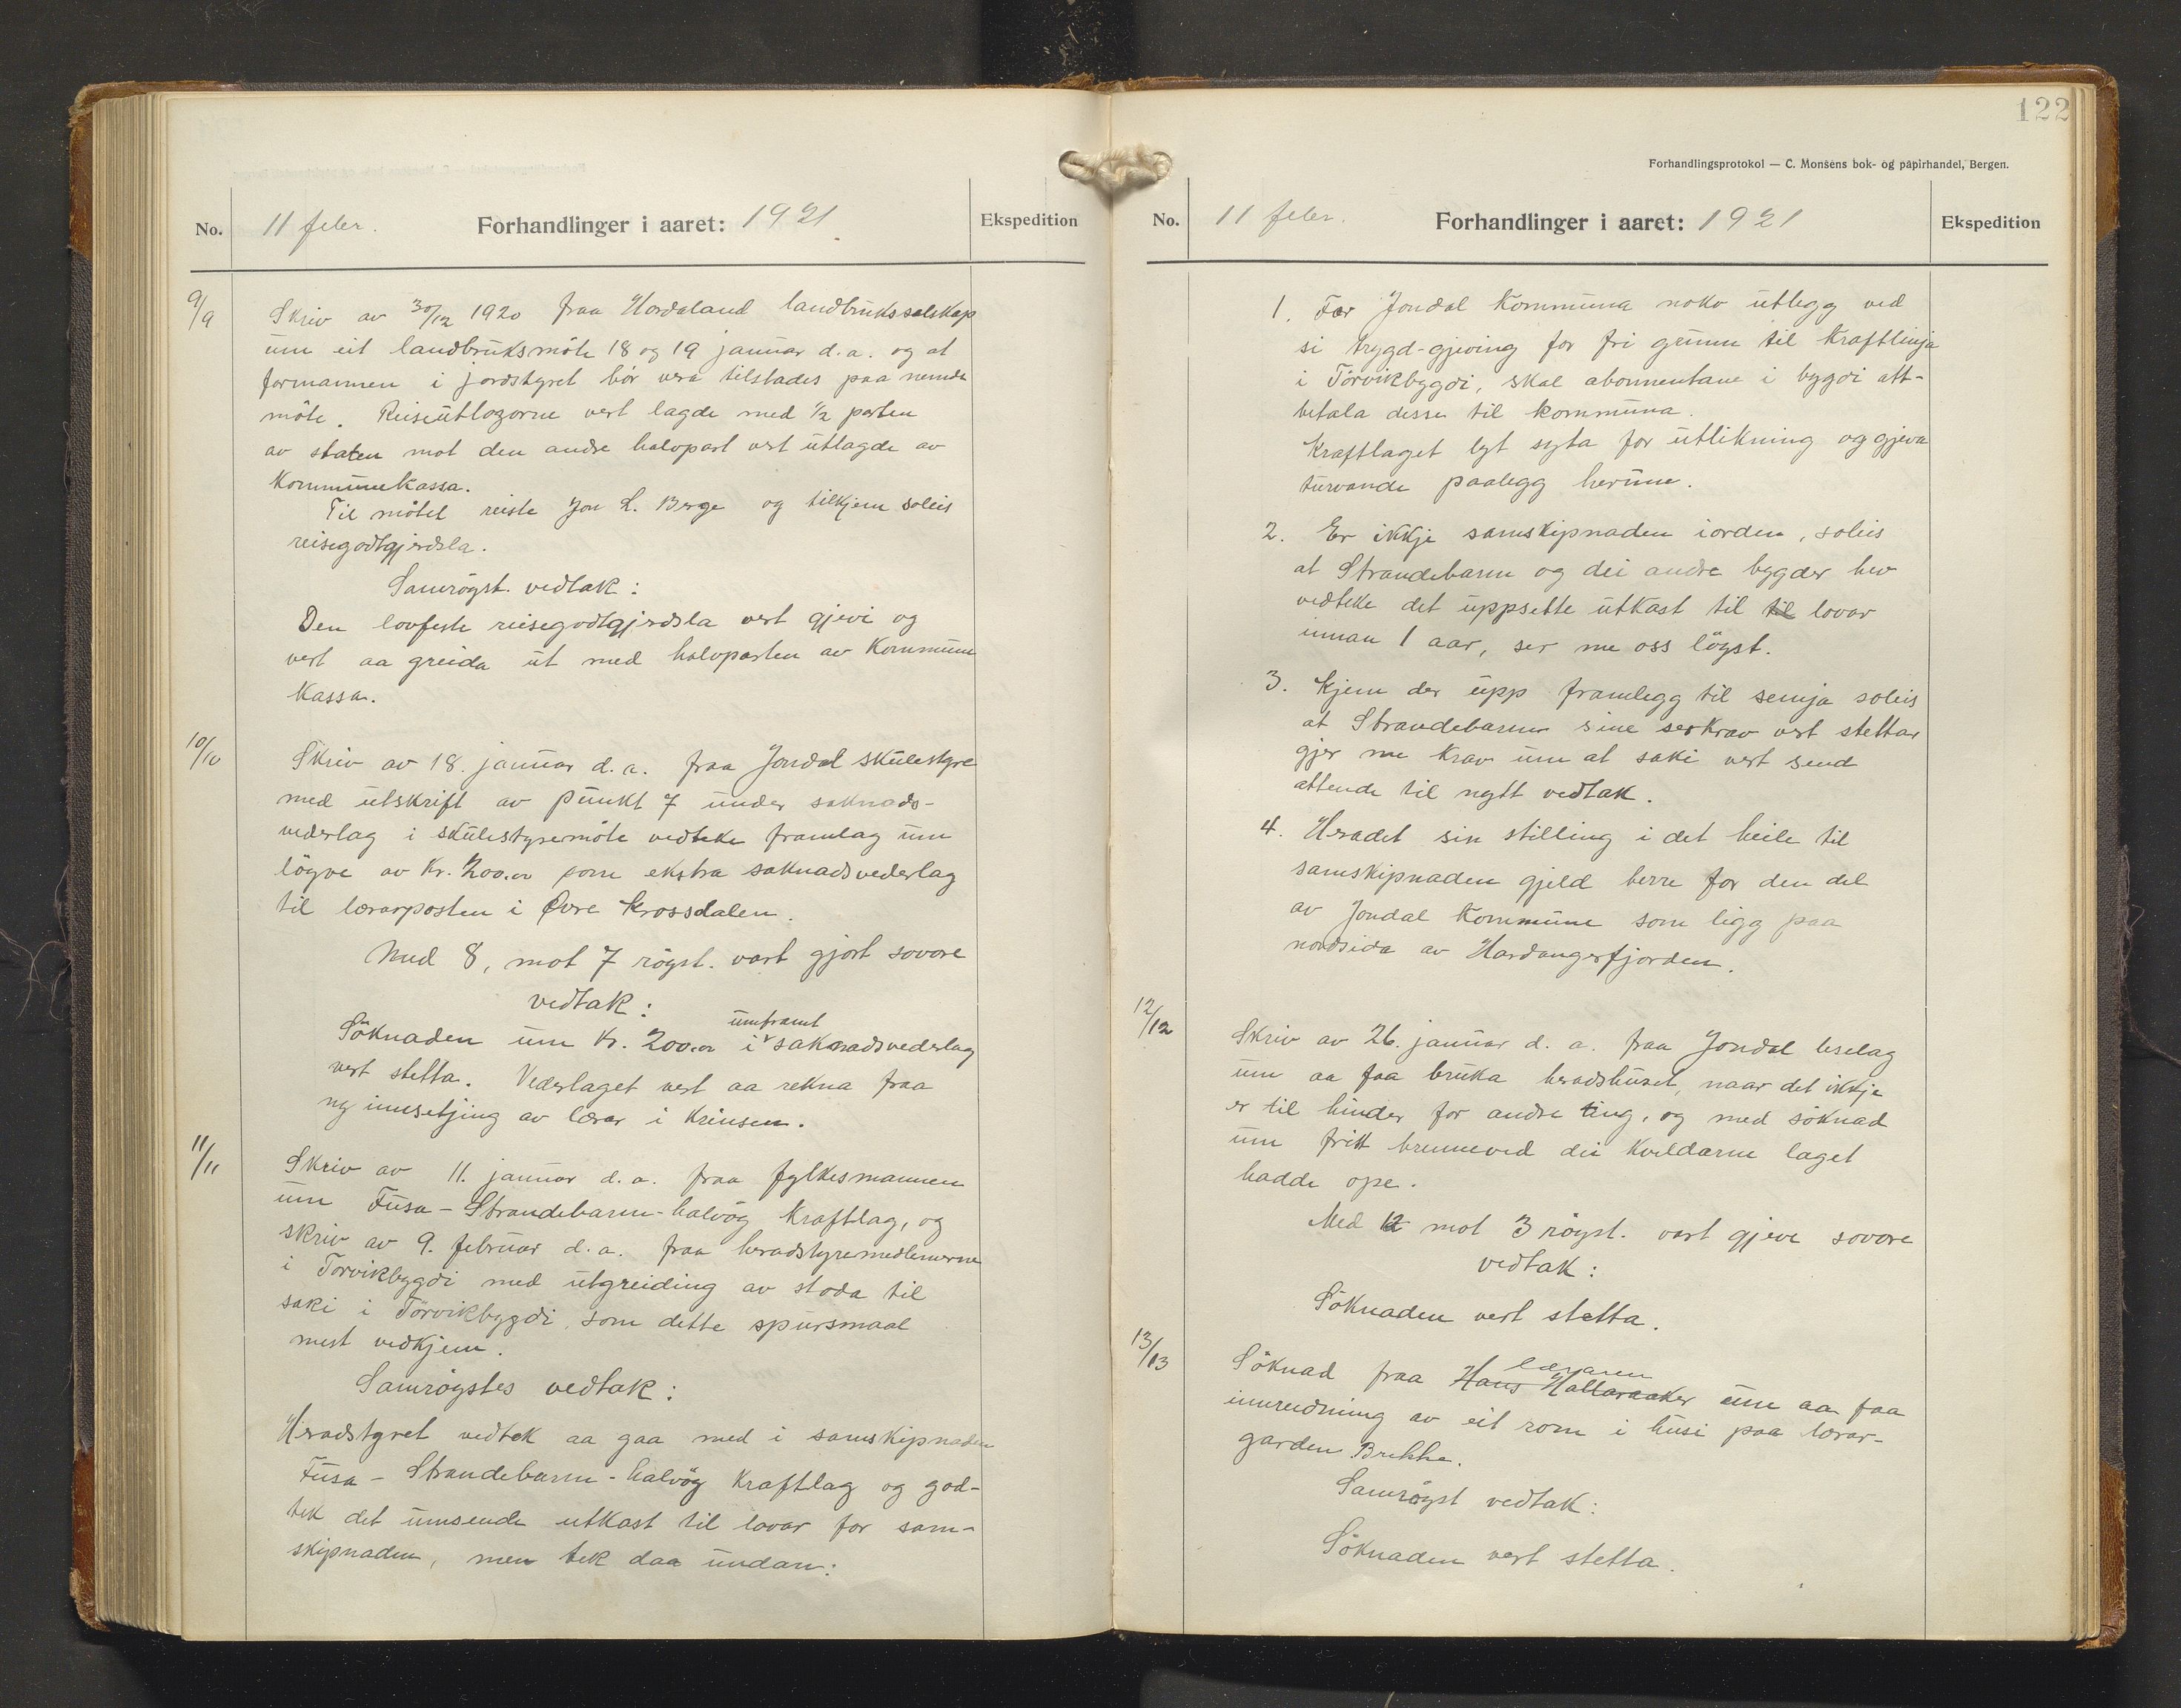 No. 11 febr. Forhandlinger i aaret: 1921 Ekspedition
9/9 Skriv av 30/12 1920 fraa Hordaland landbruksselskap
um eit landbruksmöte 18 og 19 januar d.a. og at
formannen i jordstyret bör vera tilstades paa nemde
möte. Reiseutlogorne vert lagde med 1/2 parten
av staten mot den andre halvpart vert utlagde av
Kommunekassa.
Til mötet reiste Jon L. Berge og tilkjem soleis
reisegodtgjerdsla.
Samrögst. vedtak:
Den lovfeste reisegodtgjerdsla vert gjevi og
vert aa greida ut med halvparten av Kommune
Kassa.
10/10 Skriv av 18. januar d.a. fraa Jondal skulestyre
med utskrift av punkt 7 under saknads-
vederlag i skulestyremöte vedteke framlag um
lögve av kr. 200.00 som ekstra saknadsvederlag
til lærarposten i Övre Krossdalen.
Med 8, mot 7 rögst. vart gjort sovore
vedtak:
umframt
Söknaden um Kr. 200.00 i saknadsvederlag
vert stetta. Vederlaget vert aa rekna fraa
ny innsetjing av lærar i Krinsen.
11/11 Skriv av 11. januar d.a. fraa fylkesmannen
um Fusa-Strandebarm-halvög Kraftlag, og
skriv av 9. februar d.a. fraa heradstyremedlemerne
i Torvikbygdi med utgreiding av stoda til
saki i Torvikbygdi, som dette spursmaal
mest vedkjem.
Samrögstes vedtak:
Heradstyret vedtek aa gaa med i samskipnaden
Fusa-Strandebarm-halvög Kraftlag og god-
tek det umsende utkast til lovar for sam-
skipnaden, men tek daa undan:
122
Forhandlingsprotokol — C. Monsens bok- og papirhandel, Bergen.
No. 11 febr. Forhandlinger i aaret: 1921 Ekspedition
1. Fær Jondal Kommuna noko utlegg ved
si trygd-gjeving for fri grunn til Kraftlinja
i Torvikbygdi, skal abonnentane i bygdi att-
betala desse til kommuna.
Kraftlaget lyt syta for utlikning og gjeva
turvande paalegg herum.
2. Er ikkje samskipnaden iorden, soleis
at Strandebarm og dei andre bygder hev
vedteke det uppsette utkast til til lovar
innan 1 aar, ser me oss löyst.
3. Kjem der upp framlegg til semja soleis
at Strandebarm sine serkrav vert stettar
gjer me Krav um at saki vert send
attende til nytt vedtak.
4. Heradet sin stilling i det heile til
samskipnaden gjeld berre for den del
av Jondal Kommune som ligg paa
nordsida av Hardangerfjorden.
12/12 Skriv av 26. januar d. a. fraa Jondal leselag
um aa faa bruka heradshuset, naar det ikkje
er til hinder for andre ting, og med söknad
um fritt brenneved dei kveldarne laget
hadde ope.
Med 12 mot 3 rögst. vart gjeve sovore
vedtak:
Söknaden vert stetta.
13/13 Söknad fraa Hans Hallaraaker um aa faa
læraren
innreidning av eit rom i husi paa lærar-
garden Brekke.
Samrögst vedtak:
Söknaden vert stetta.